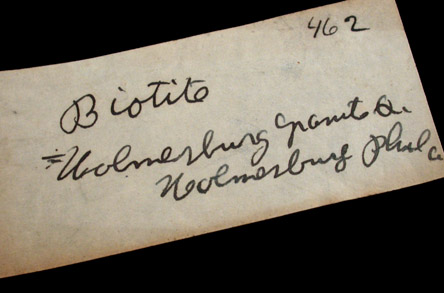 462
Biotite
Holmesburg granite Q.
Holmesburg Phila